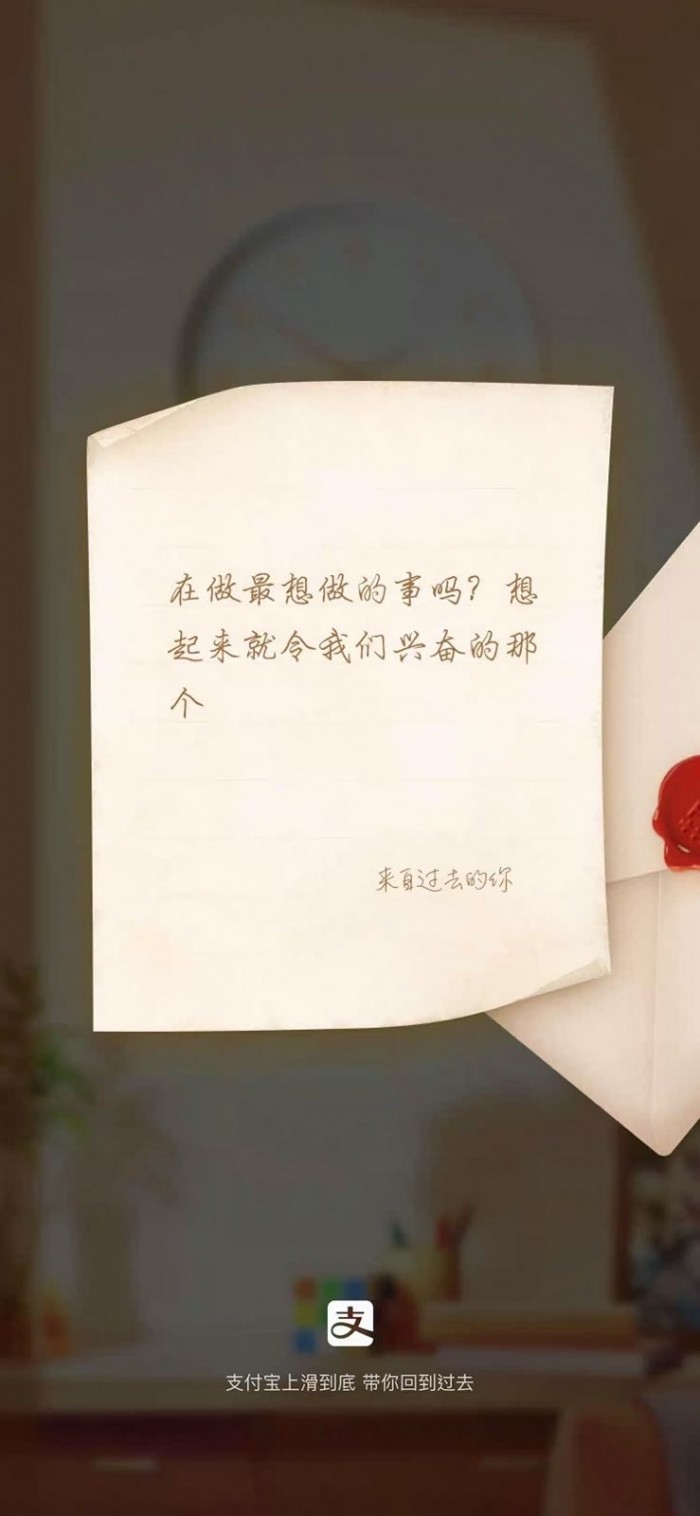 在做最想做的事吗？想
起来就令我们兴奋的那
个
来自过去的你
支
支付宝上滑到底 带你回到过去